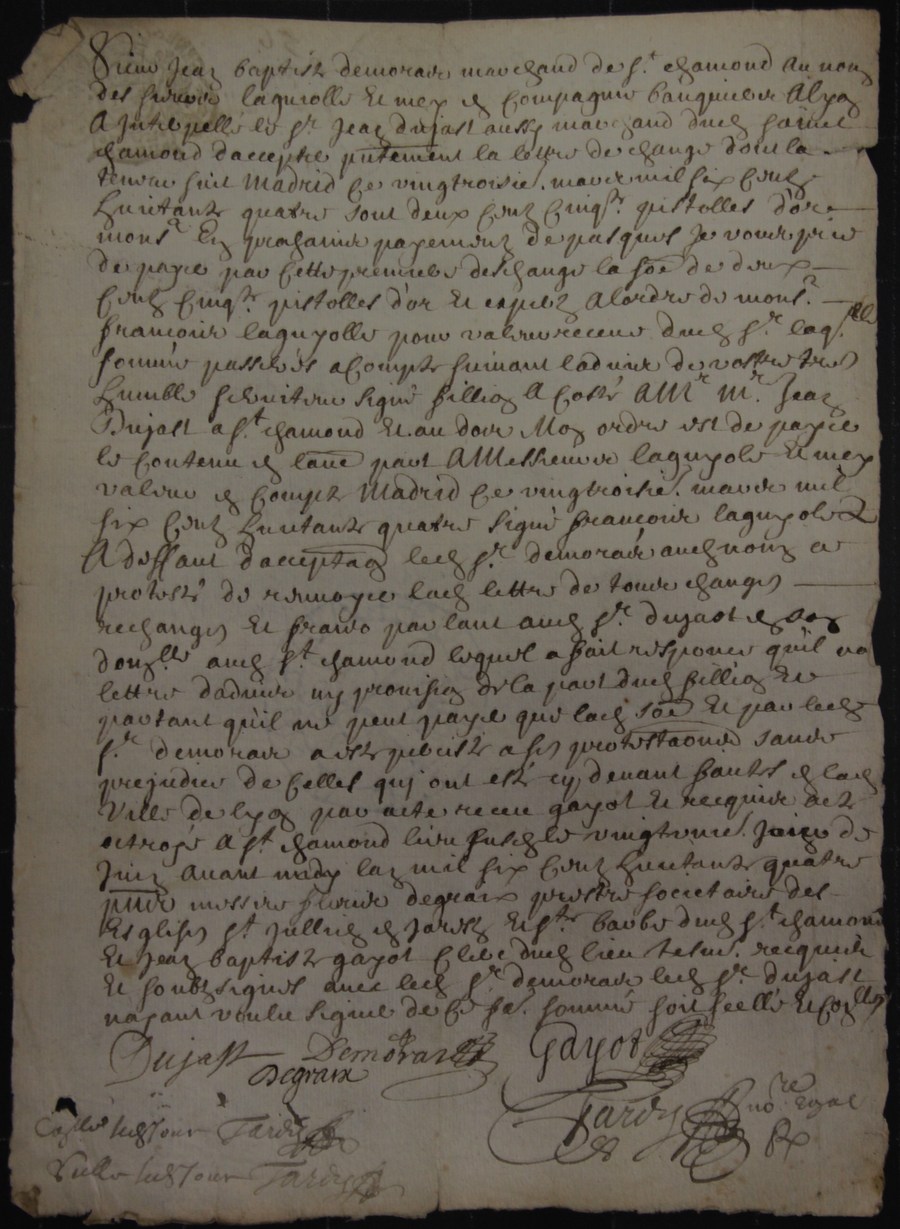 Sieur Jean baptiste demorare marchand de St chamond au nom
des sieurs laguiolle et mey en Compagnie banquiers A lyon
A jnterpellé le sr Jean dujast aussy marchand dud saint
chamond daccepter pntement la lettre de change dont la
teneur suit Madrid ce vingtroisie. mars mil six Centz
huictante quatre sont deux Cent Cinqte pistolles d'or
monsr En prochains payementz de pasques Je vous prie
de payer par cette premiere deschange la soē de deux
Centz Cinqte pistolles d'or Et espes A lordre de monsr
francois laguyolle pour valeur receue dud sr lag.lle
somme passerés a Compte suivant ladvis de vostre tres
humble serviteur signé fillion A Costé A Mr Mr Jean
Dujast a St chamond Et au dos Mon ordre est de payer
le Contenu en lautre part A Messieurs laguyole Et mey
valeur en Compte Madrid Ce vingtroisie. mars mil
six Centz huictante quatre signé francois laguyole
A deffaut d'acceptaon led sr demorare aud nom a
protesté de renvoyer lad lettre de tous changes
rechanges Et fraiz parlant aud sr dujast en son
domlle aud St chamond lequel a fait responce qu'il na
lettre dadvis ny provision de la part dud fillion Et
partant qu'il ne peut payer que lad soē Et par led
sr demorare a esté persisté a ses protestaons sans
prejudice de celles qui ont esté cy devant faites en lad
Ville de lyon par acte receu gayot Et requis acte
octroyé A St chamond lieu susd le vingtroisie. Jour de
Juin avant midy lan mil six Centz huictante quatre
pnce messire pierre degraix prestre societaire des
Esglises St Jullien en Jarest Et Ste barbe dud St chamond
Et Jean baptiste gayot Clerc dud lieu tesms. requis
Et soubzsignés avec led sr demorare led sr dujast
nayant voulu signer de Ce sommé soit scellé Et Conllé
Dujast Demorare Gayot
Degraix
Tardy nore royal
Conllé led Jour Tardy
Scellé led Jour Tardy